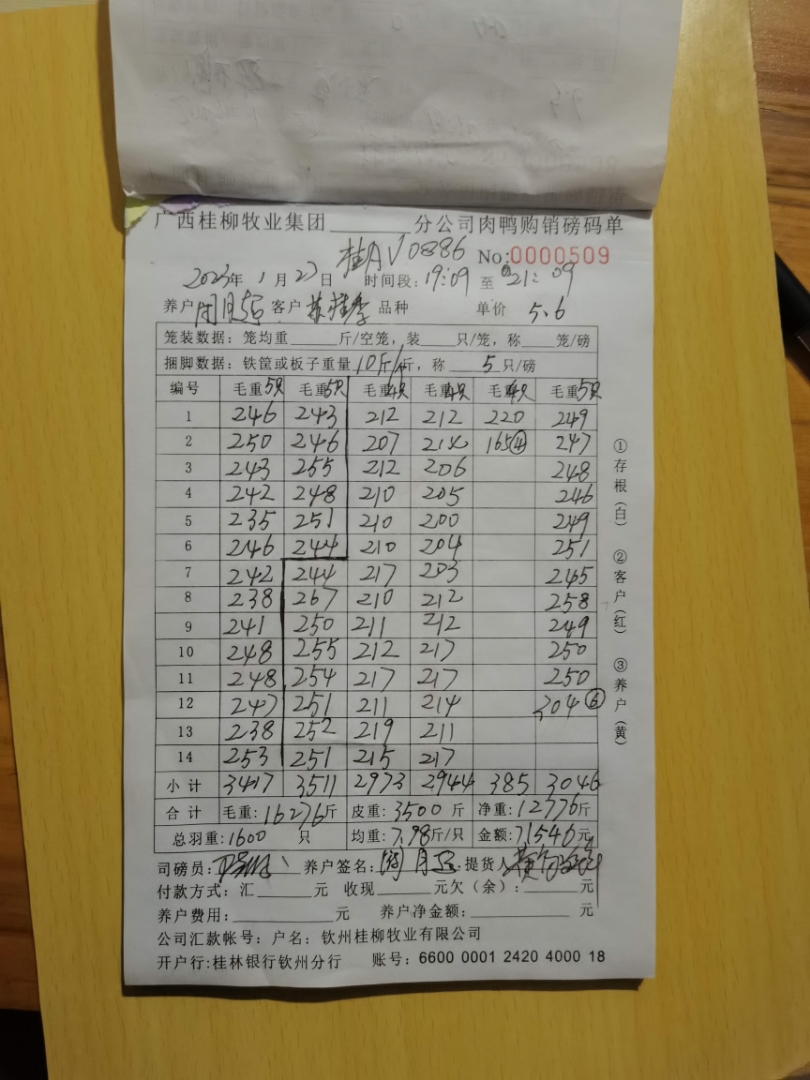 广西桂柳牧业集团________分公司肉鸭购销磅码单
桂AV0886 No:0000509
2023年1月27日 时间段:19:09至21:09
养户 客户 品种 单价 5.6
笼装数据:笼均重____斤/空笼,装____只/笼,称____笼/磅
捆脚数据:铁筐或板子重量10斤/斤,称 5 只/磅
编号 毛重5只 毛重5只 毛重4只 毛重4只 毛重4只 毛重5只
1 246 243 212 212 220 249
2 250 246 207 214 165④ 247
3 243 255 212 206 248
4 242 248 210 205 246
5 235 251 210 200 249
6 246 244 210 204 251
7 242 244 217 203 245
8 238 267 210 212 258
9 241 250 211 212 249
10 248 255 212 217 250
11 248 254 217 217 250
12 247 251 211 214 304⑥
13 238 252 219 211
14 253 251 215 217
小计 3417 3511 2973 2944 385 3046
合计 毛重:16276斤 皮重:3500斤 净重:12776斤
总羽重:1600 只 均重:7.98斤/只 金额:71546元
司磅员: 养户签名: 提货人
付款方式:汇______元 收现______元欠(余):______元
养户费用:________元 养户净金额:________元
公司汇款帐号:户名:钦州桂柳牧业有限公司
开户行:桂林银行钦州分行 账号:6600 0001 2420 4000 18
①存根(白) ②客户(红) ③养户(黄)